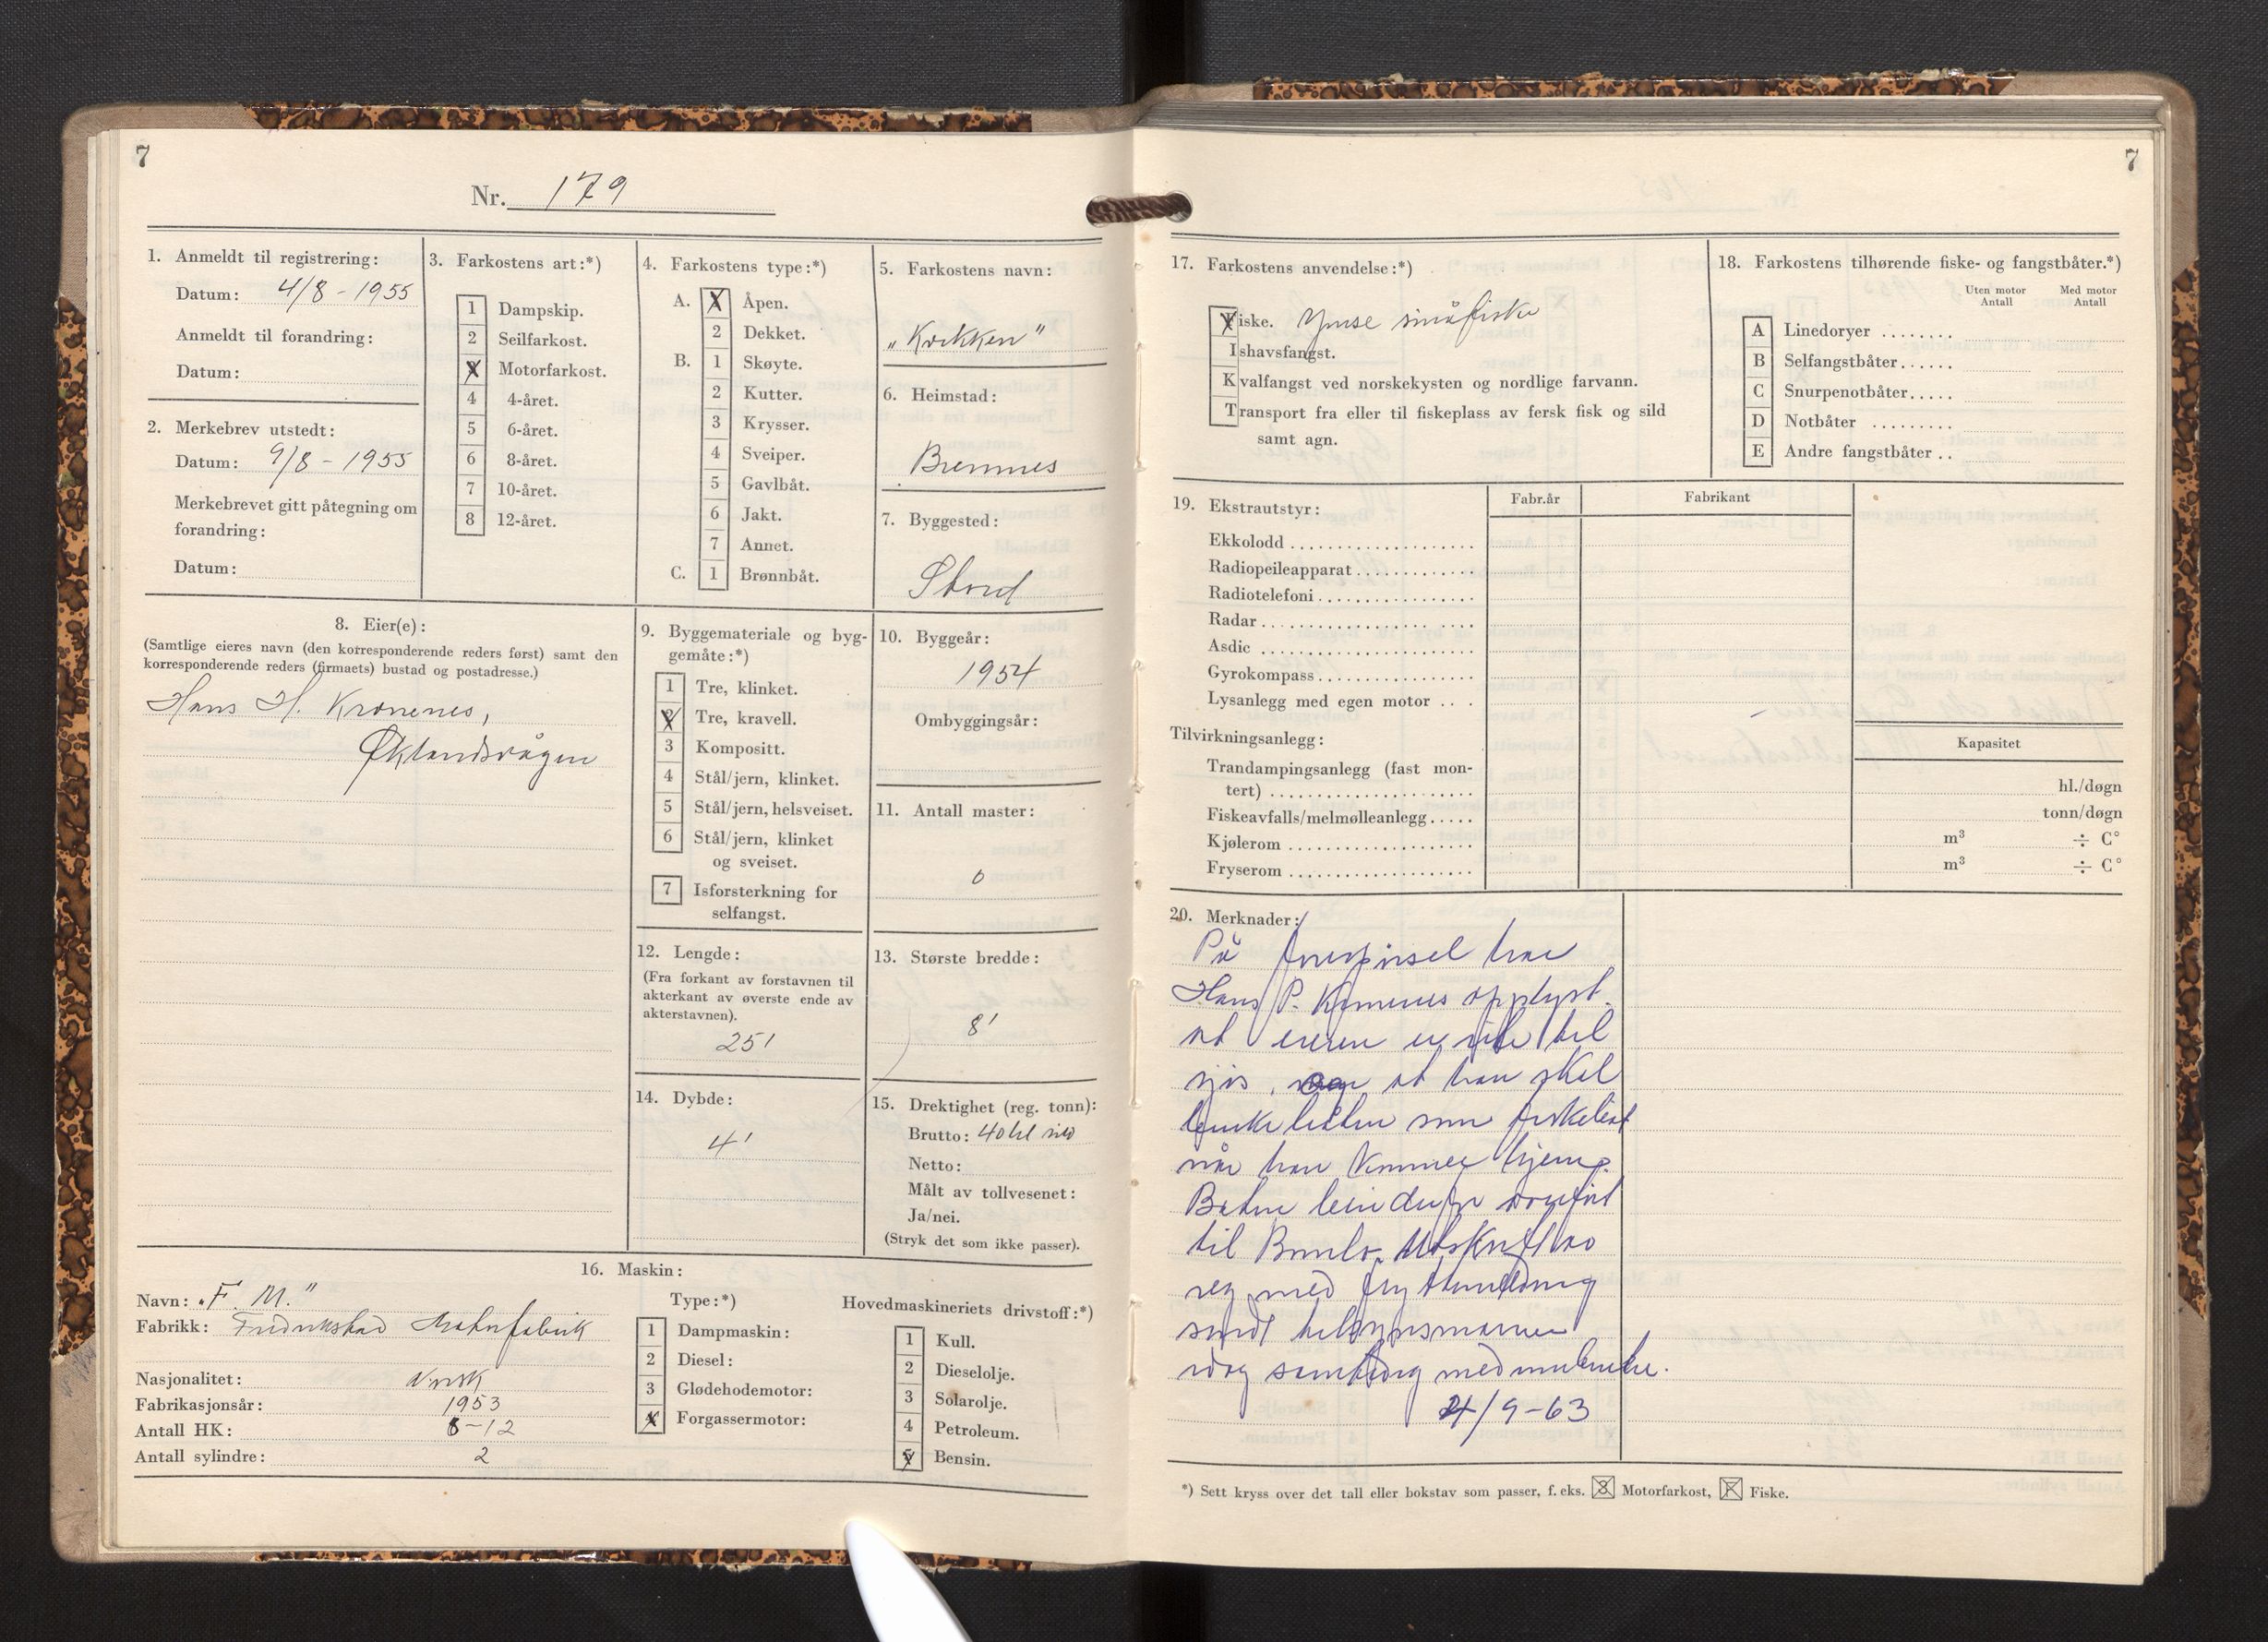 7
Nr. 179
1. Anmeldt til registrering:
Datum: 4/8 - 1955
Anmeldt til forandring:
Datum:
2. Merkebrev utstedt:
Datum: 9/8 - 1955
Merkebrevet gitt påtegning om
forandring:
Datum:
3. Farkostens art:*)
1 Dampskip.
2 Seilfarkost.
X Motorfarkost.
4 4-året.
5 6-året.
6 8-året.
7 10-året.
8 12-året.
4. Farkostens type:*)
A. X Åpen.
2 Dekket.
B. 1 Skøyte.
2 Kutter.
3 Krysser.
4 Sveiper.
5 Gavlbåt.
6 Jakt.
7 Annet.
C. 1 Brønnbåt.
5. Farkostens navn:
„Kvikken"
6. Heimstad:
Bremnes
7. Byggested:
Stord
8. Eier(e):
(Samtlige eieres navn (den korresponderende reders først) samt den
korresponderende reders (firmaets) bustad og postadresse.)
Hans H. Kronenes,
Øklandsvågen
9. Byggemateriale og byg-
gemåte:*)
1 Tre, klinket.
X Tre, kravell.
3 Kompositt.
4 Stål/jern, klinket.
5 Stål/jern, helsveiset.
6 Stål/jern, klinket
og sveiset.
7 Isforsterkning for
selfangst.
10. Byggeår:
1954
Ombyggingsår:
11. Antall master:
0
12. Lengde:
(Fra forkant av forstavnen til
akterkant av øverste ende av
akterstavnen).
25'
13. Største bredde:
8'
14. Dybde:
4'
15. Drektighet (reg. tonn):
Brutto: 40 hl sild
Netto:
Målt av tollvesenet:
Ja/nei.
(Stryk det som ikke passer).
16. Maskin:
Navn: „F. M."
Fabrikk: Fredrikstad Motorfabrik
Nasjonalitet: Norsk
Fabrikasjonsår: 1953
Antall HK: 8-12
Antall sylindre: 2
Type:*)
1 Dampmaskin:
2 Diesel:
3 Glødehodemotor:
X Forgassermotor:
Hovedmaskineriets drivstoff:*)
1 Kull.
2 Dieselolje.
3 Solarolje.
4 Petroleum.
X Bensin.
7
17. Farkostens anvendelse:*)
Fiske. Ymse småfiske
Ishavsfangst.
Kvalfangst ved norskekysten og nordlige farvann.
Transport fra eller til fiskeplass av fersk fisk og sild
samt agn.
18. Farkostens tilhørende fiske- og fangstbåter.*)
Uten motor Antall
Med motor Antall
A Linedoryer
B Selfangstbåter
C Snurpenotbåter
D Notbåter
E Andre fangstbåter
19. Ekstrautstyr:
Fabr.år
Fabrikant
Ekkolodd
Radiopeileapparat
Radiotelefoni
Radar
Asdic
Gyrokompass
Lysanlegg med egen motor
Tilvirkningsanlegg:
Kapasitet
Trandampingsanlegg (fast mon-
tert) hl./døgn
Fiskeavfalls/melmølleanlegg tonn/døgn
Kjølerom m³ ÷ C°
Fryserom m³ ÷ C°
20. Merknader:
På forespørsel har
Hans P. opplyst
at eieren er ute til
sjøs, og at han skal
bruke båten som fiskebåt
når han kommer hjem.
Båten
til Bømlo. Utskrift av
reg. med flyttemelding
sendt tilsynsmannen
idag
4/9-63
*) Sett kryss over det tall eller bokstav som passer, f. eks. 3 Motorfarkost, F Fiske.